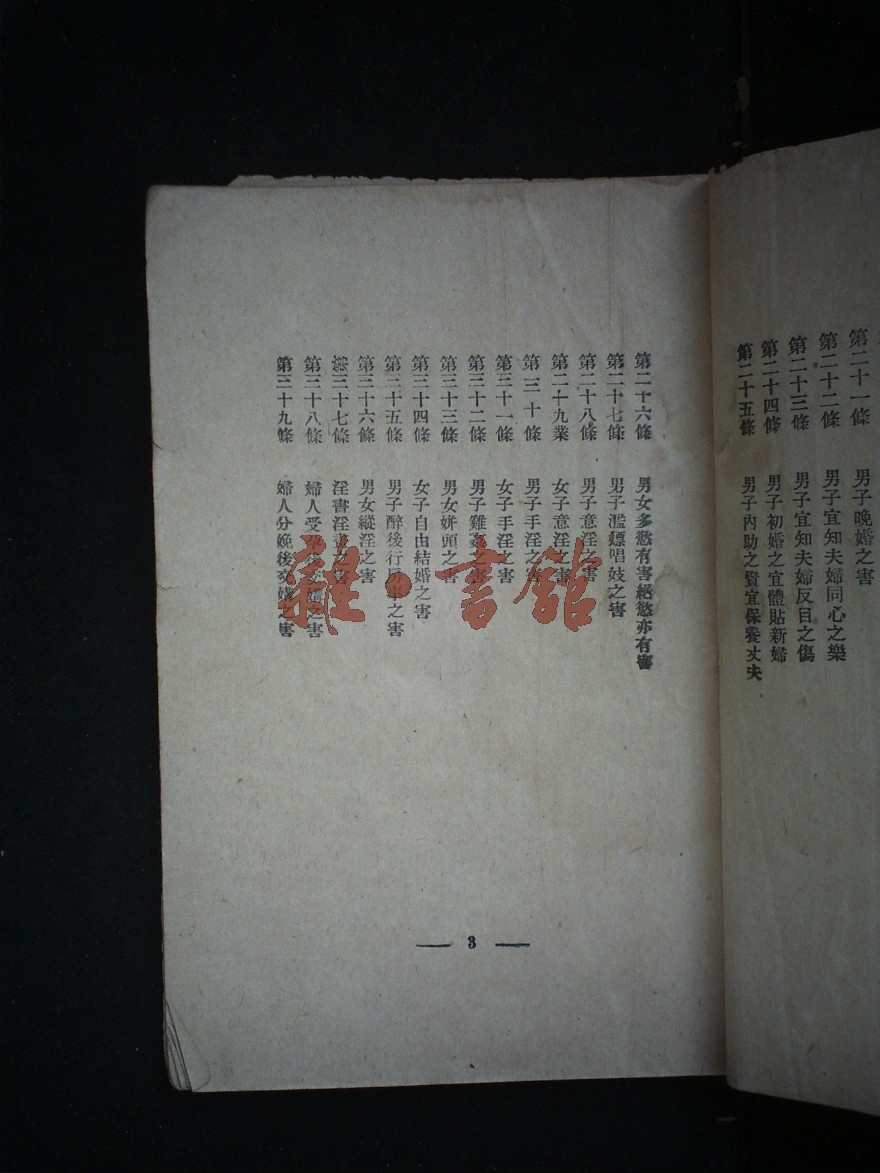 第二十一條 男子晚婚之害
第二十二條 男子宜知夫婦同心之樂
第二十三條 男子宜知夫婦反目之傷
第二十四條 男子初婚之宜體貼新婦
第二十五條 男子內助之賢宜保養丈夫
第二十六條 男女多慾有害絕慾亦有害
第二十七條 男子濫嫖唱妓之害
第二十八條 男子意淫之害
第二十九業 女子意淫之害
第三十條 男子手淫之害
第三十一條 女子手淫之害
第三十二條 男子雞姦之害
第三十三條 男女姘頭之害
第三十四條 女子自由結婚之害
第三十五條 男子醉後行房事之害
第三十六條 男女縱淫之害
三十七條 淫書淫畫之害
第三十八條 婦人受孕後交媾之害
第三十九條 婦人分娩後交媾之害
3
雜·書館